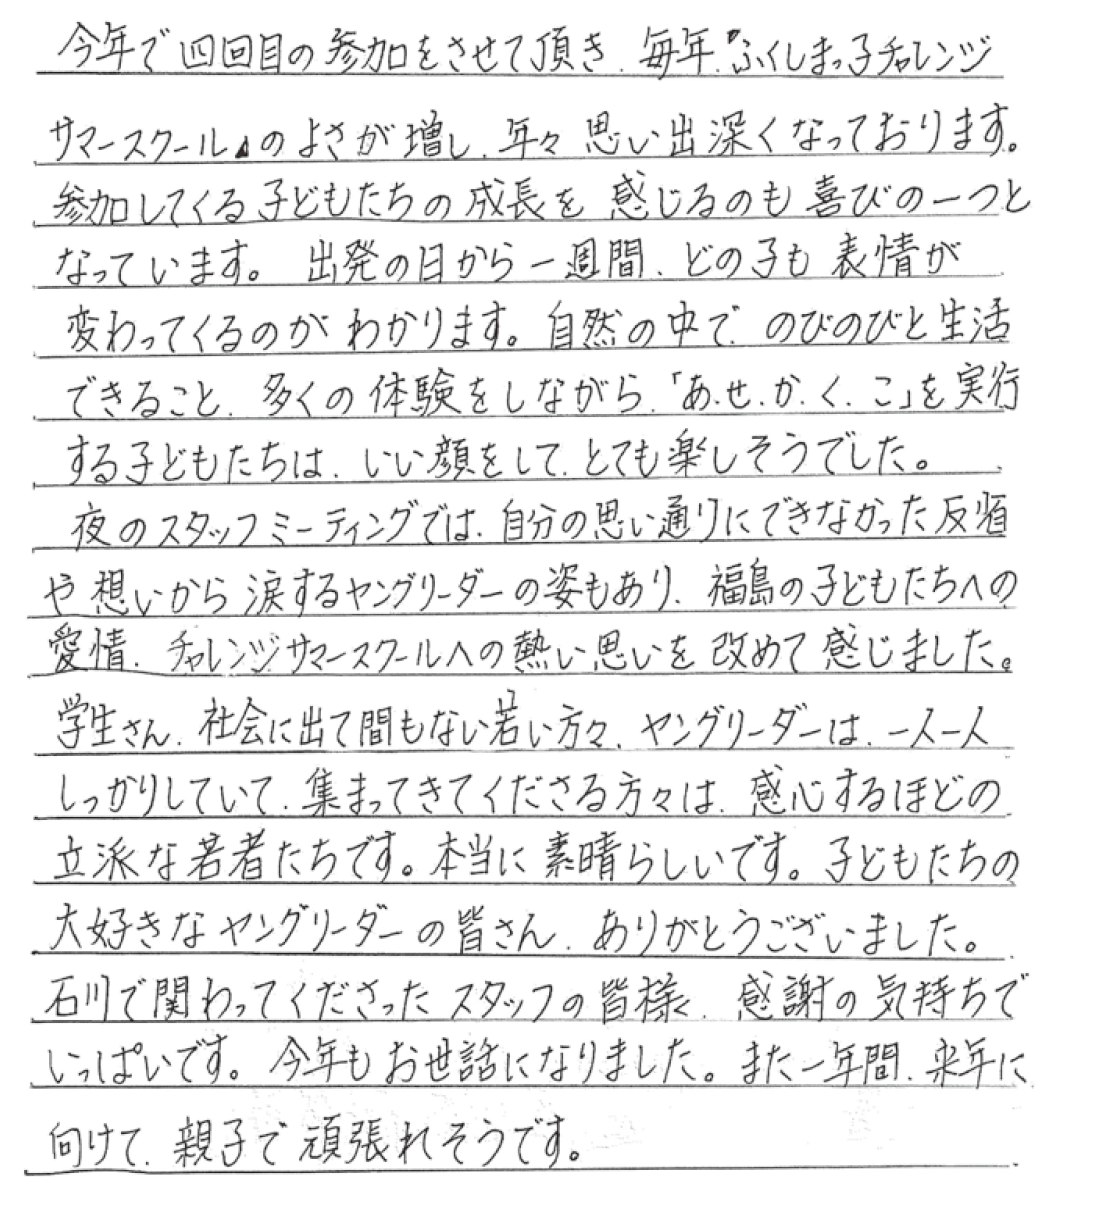 今年で四回目の参加をさせて頂き、毎年『ふくしまっ子チャレンジ
サマースクール』のよさが増し、年々思い出深くなっております。
参加してくる子どもたちの成長を感じるのも喜びの一つと
なっています。出発の日から一週間、どの子も表情が
変わってくるのがわかります。自然の中で、のびのびと生活
できること、多くの体験をしながら、「あ、せ、か、く、こ」を実行
する子どもたちは、いい顔をして、とても楽しそうでした。
夜のスタッフミーティングでは、自分の思い通りにできなかった反省
や想いから涙するヤングリーダーの姿もあり、福島の子どもたちへの
愛情、チャレンジサマースクールへの熱い思いを改めて感じました。
学生さん、社会に出て間もない若い方々、ヤングリーダーは、一人一人
しっかりしていて、集まってきてくださる方々は、感心するほどの
立派な若者たちです。本当に素晴らしいです。子どもたちの
大好きなヤングリーダーの皆さん、ありがとうございました。
石川で関わってくださったスタッフの皆様、感謝の気持ちで
いっぱいです。今年もお世話になりました。また一年間、来年に
向けて、親子で頑張れそうです。